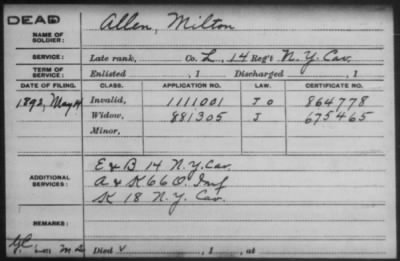 DEAD
NAME OF SOLDIER: Allen, Milton
SERVICE: Late rank, Co. L, 14 Reg't N.Y. Cav.
TERM OF SERVICE: Enlisted , 1 Discharged , 1
DATE OF FILING. CLASS. APPLICATION NO. LAW. CERTIFICATE NO.
1892, May Invalid, 1111001 J O 864778
Widow, 881305 J 675465
Minor,
ADDITIONAL SERVICES: E & B 14 N.Y. Cav.
A & K 66 O. Inf
K 18 N.Y. Cav.
REMARKS:
Died , 1 , at